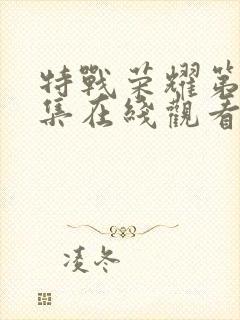 特戰荣耀第
集在綫觀看
凌冬